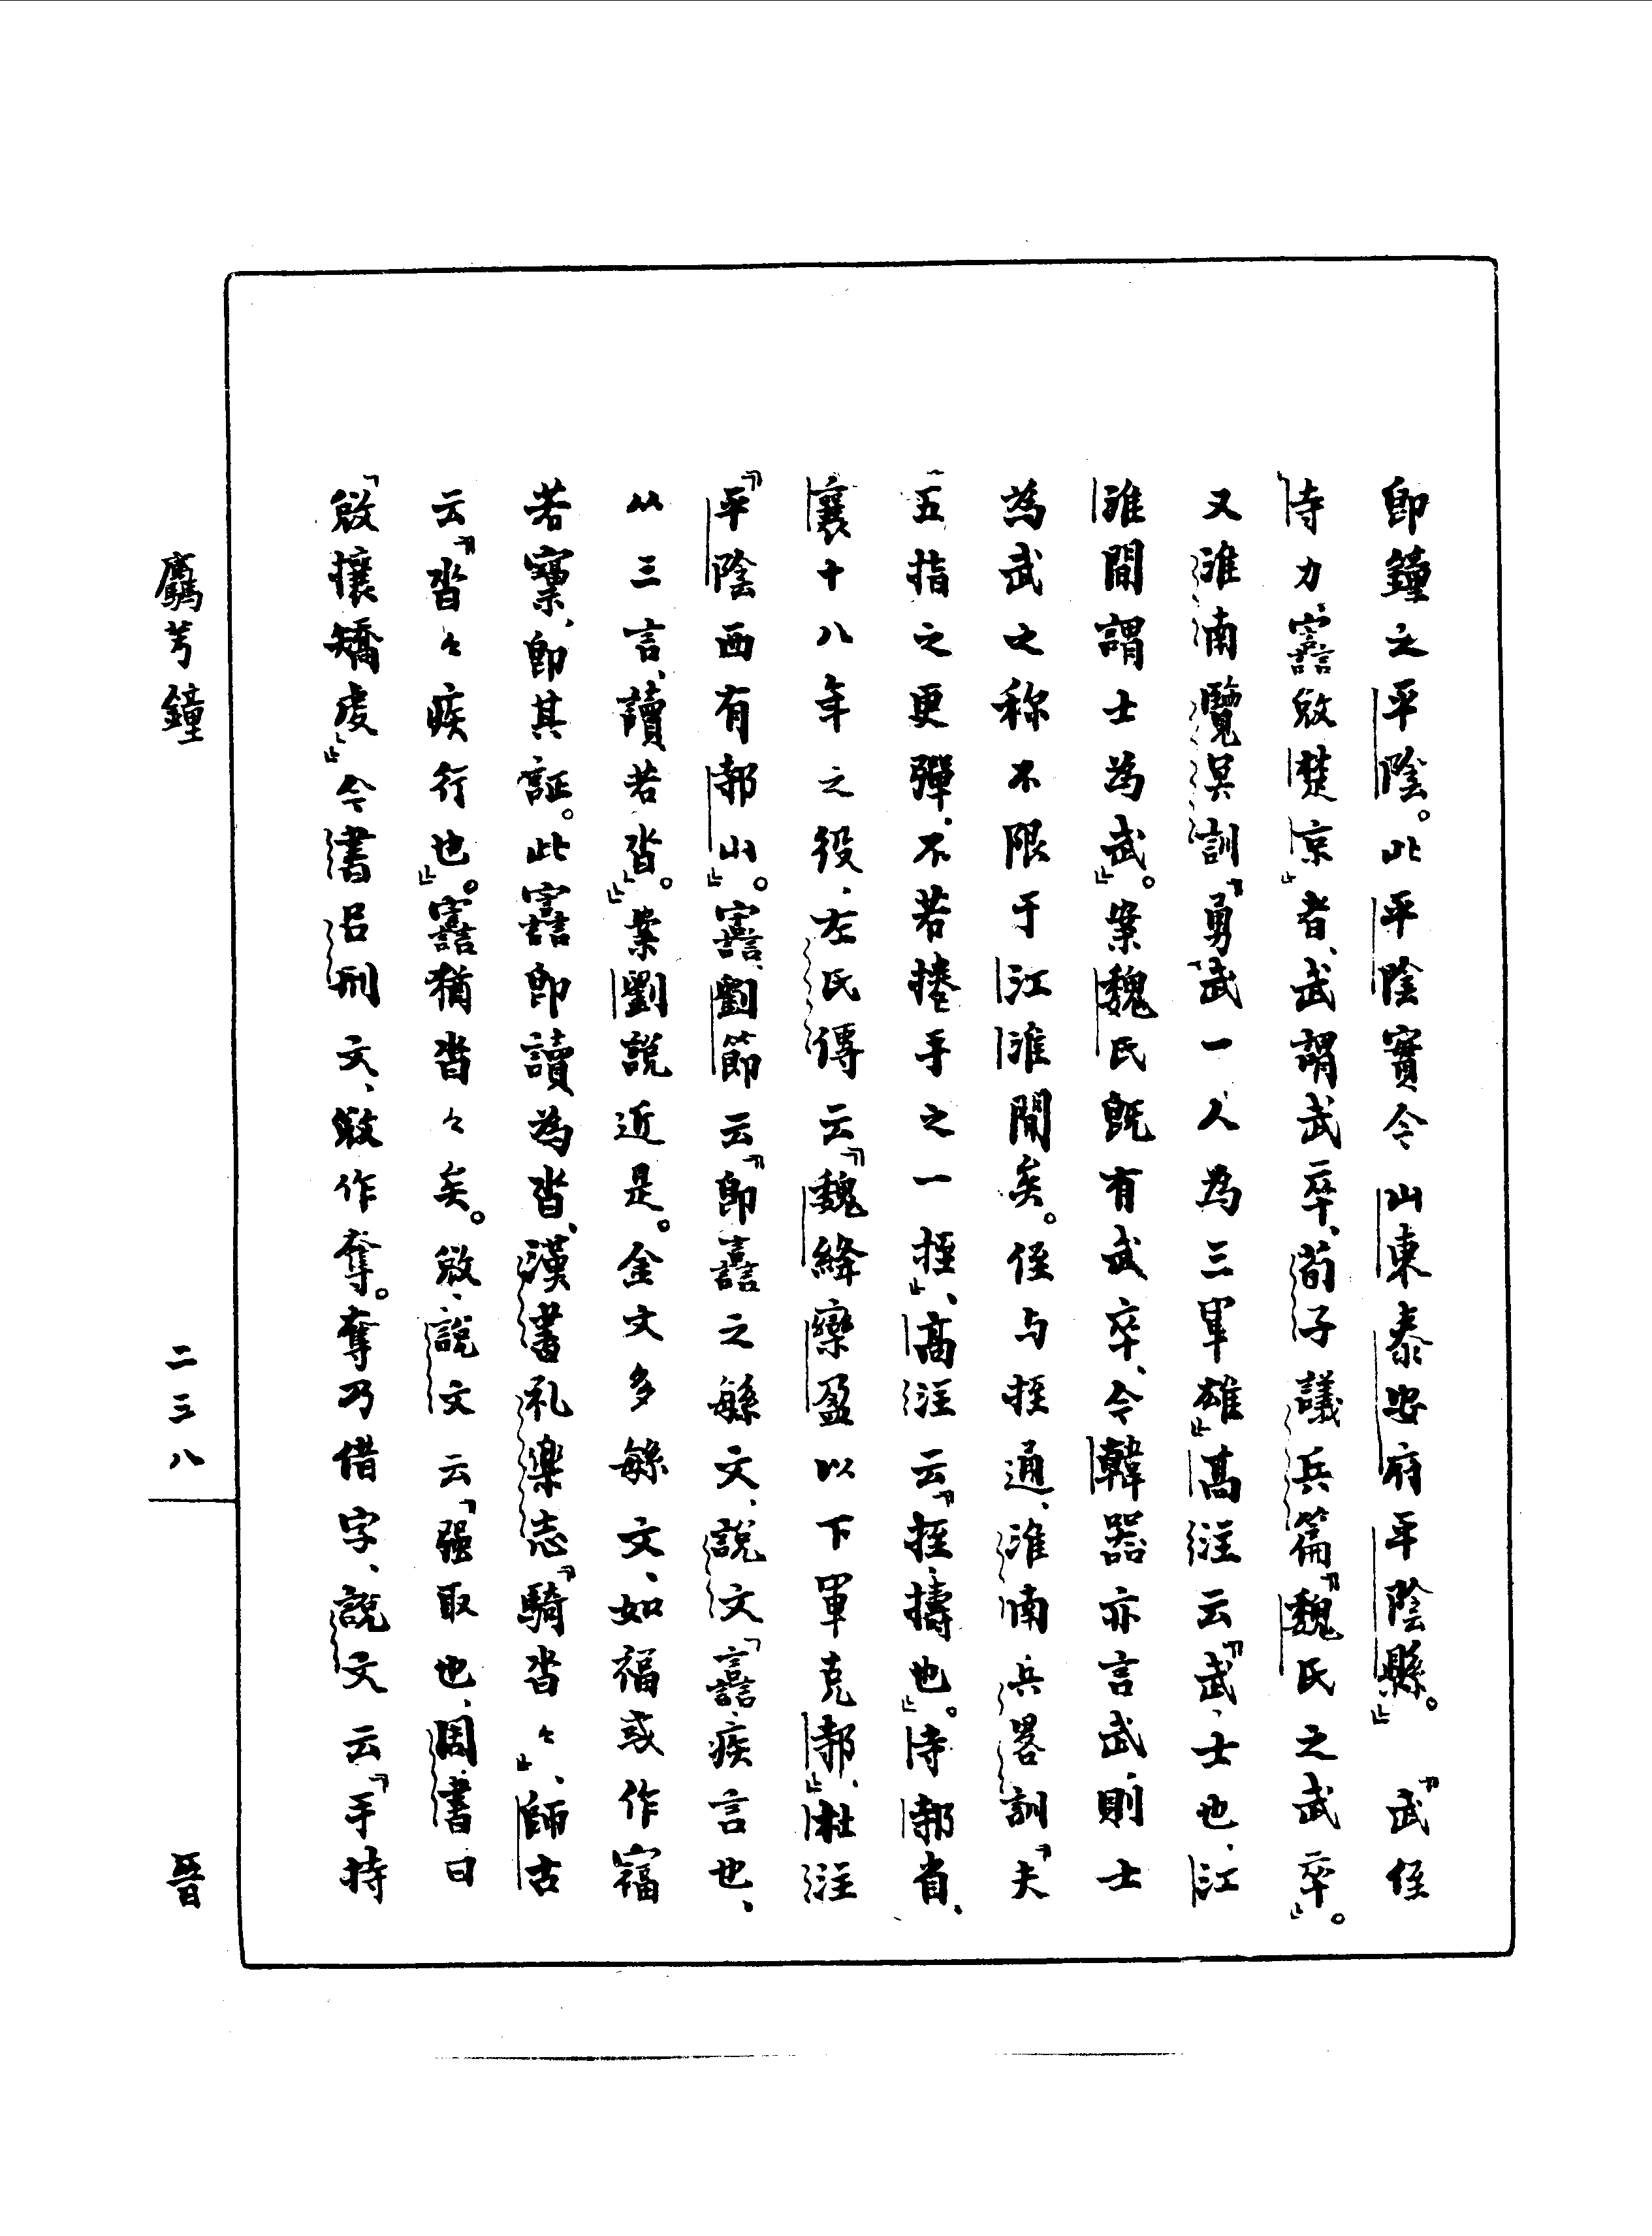 即鐘之平陰。此平陰實今山東泰安府平陰縣。』　『武侄
寺力、𡫳敓楚京』者、武謂武卒、荀子議兵篇『魏氏之武卒』。
又淮南覽冥訓『勇武一人為三軍雄』高注云『武、士也、江
淮間謂士為武』。案魏氏既有武卒、今韓器亦言武、則士
為武之称不限于江淮間矣。侄与挃通、淮南兵畧訓『夫
五指之更彈、不若捲手之一挃』、高注云『挃、擣也』。寺邿省、
襄十八年之役、左氏傳云『魏絳欒盈以下軍克邿』、杜注
『平陰西有邿山』。𡫳、劉節云『即譶之緐文、說文『譶、疾言也、
从三言、讀若沓』。』案劉說近是。金文多緐文、如福或作𥨍
若寷、即其証。此𡫳即讀為沓、漢書礼楽志『騎沓々』、師古
云『沓々疾行也』。𡫳猶沓々矣。敓、說文云『强取也、周書曰
『敓攘矯虔』』今書呂刑文、敓作奪。奪乃借字、說文云『手持
鷹芍鐘
二三八
晉